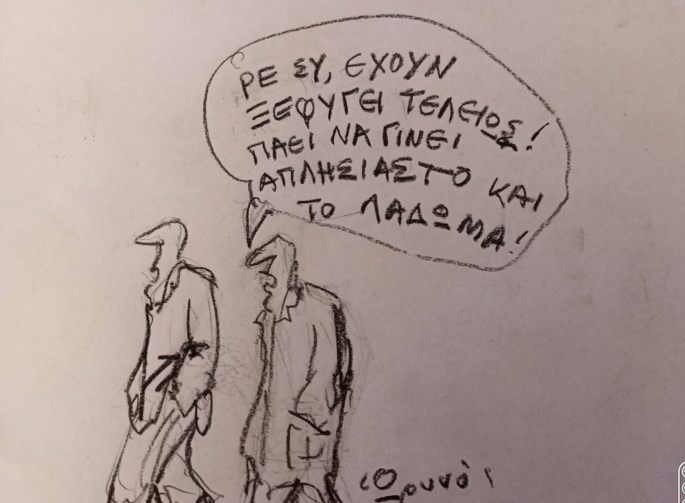 ΡΕ ΣΥ, ΕΧΟΥΝ
ΞΕΦΥΓΕΙ ΤΕΛΕΙΟΣ!
ΠΑΕΙ ΝΑ ΓΙΝΕΙ
ΑΠΛΗΣΙΑΣΤΟ ΚΑΙ
ΤΟ ΛΑΔΩΜΑ!